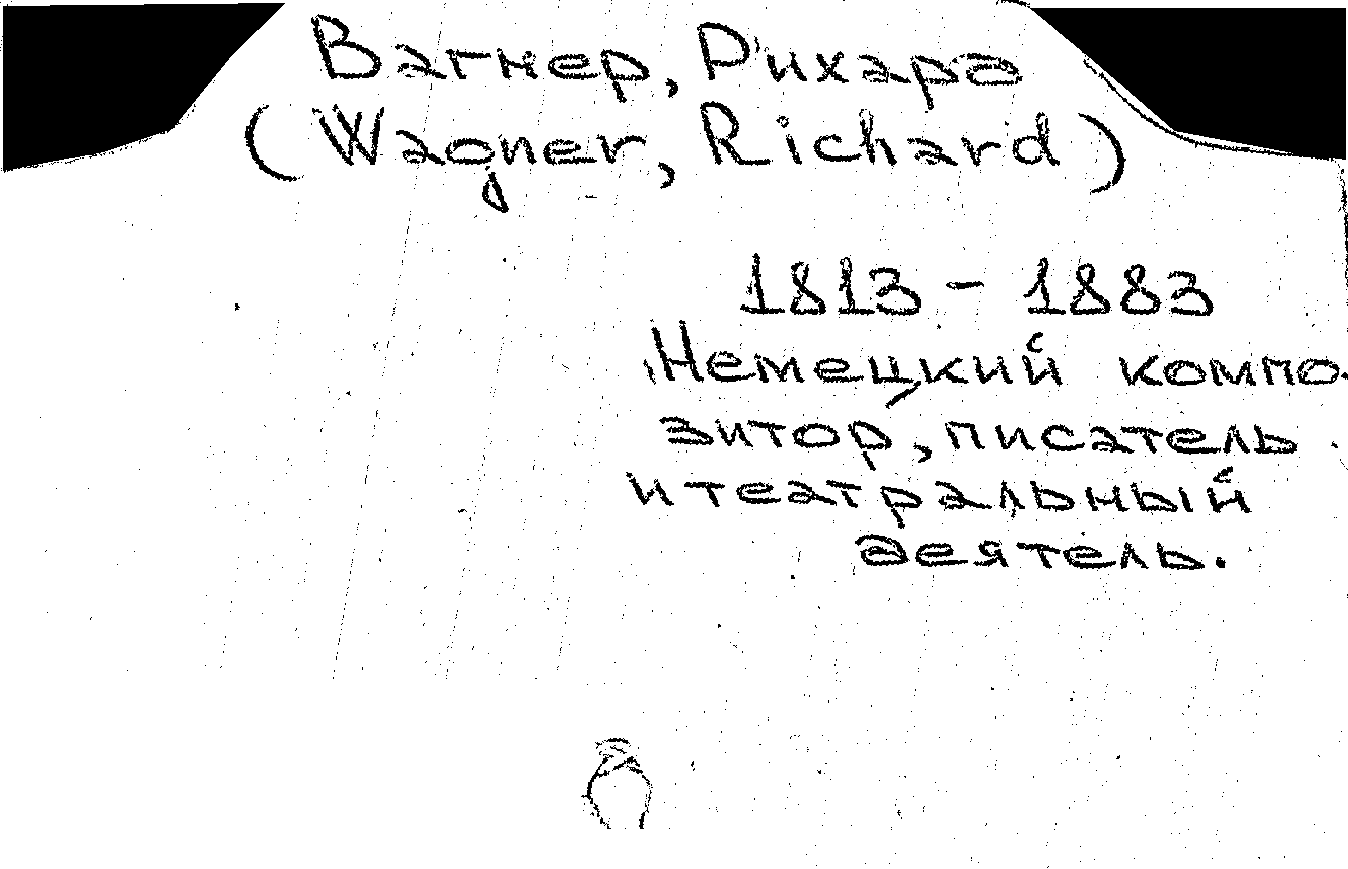 Вагнер, Рихард
(Wagner, Richard)
1813 - 1883
Немецкий компо-
зитор, писатель
и театральный
деятель.